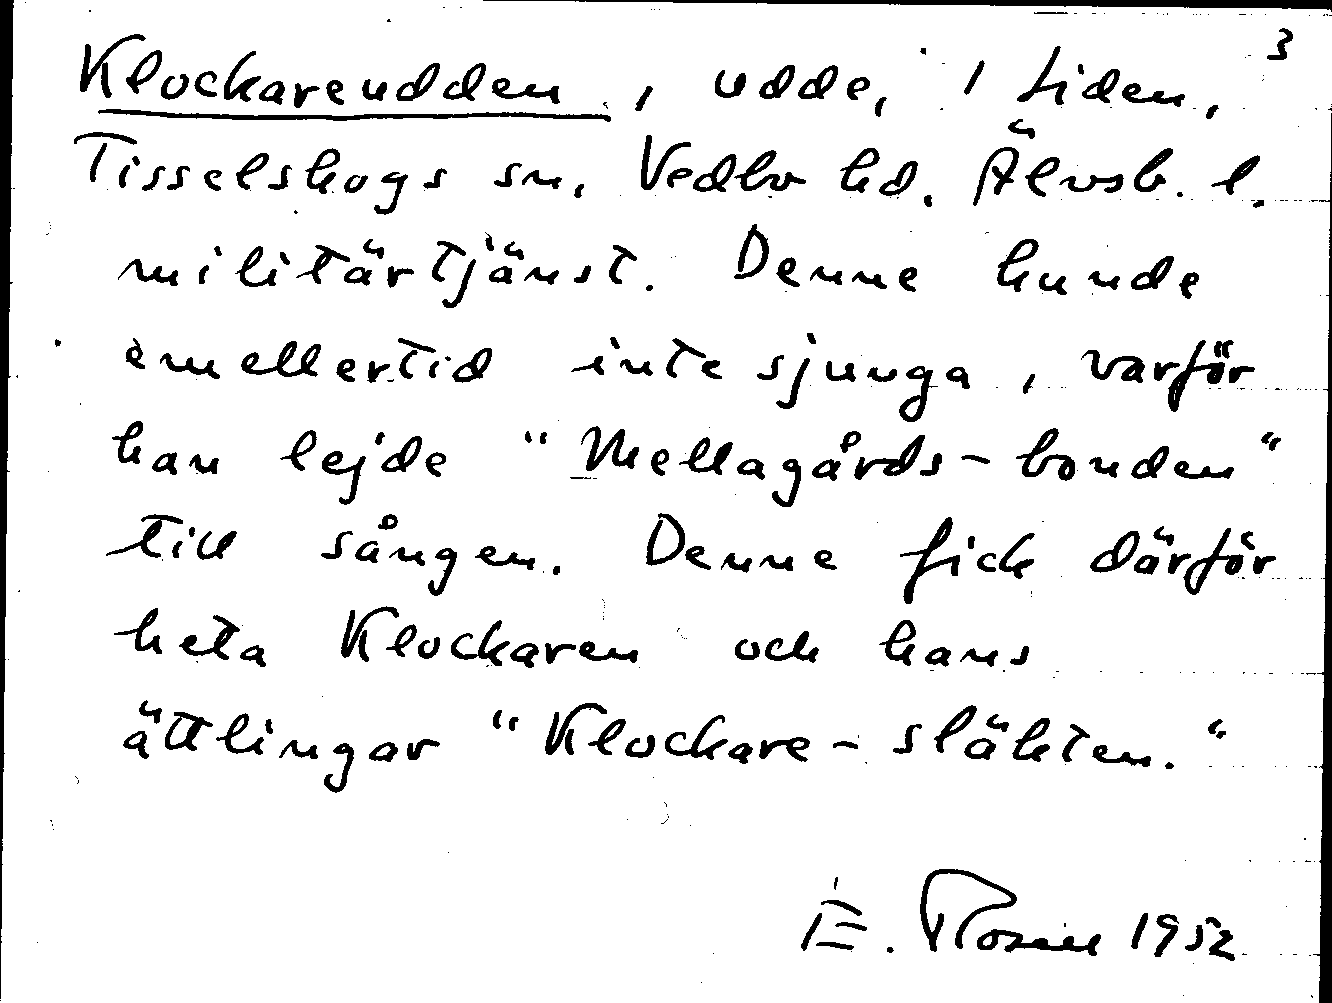 3
Klockareudden, udde, i Liden,
Tisselskogs sn, Vedbo hd. Älvsb. l.
militärtjänst. Denne kunde
emellertid inte sjunga, varför
han lejde "Mellagårds-bonden"
till sången. Denne fick därför
heta Klockaren och hans
ättlingar "Klockare-släkten."
E. Rosell 1952